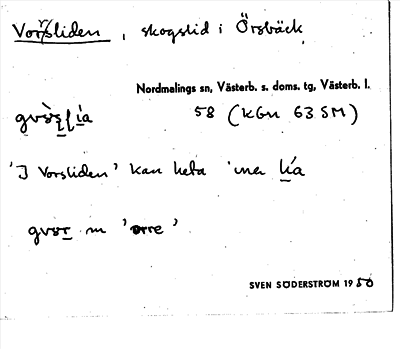 Vorrsliden, skogslid i Örsbäck
Nordmalings sn, Västerb. s. doms. tg, Västerb. l.
58 (KGu 63 SM)
'I Vorsliden' kan heta
m 'orre'
SVEN SÖDERSTRÖM 1950